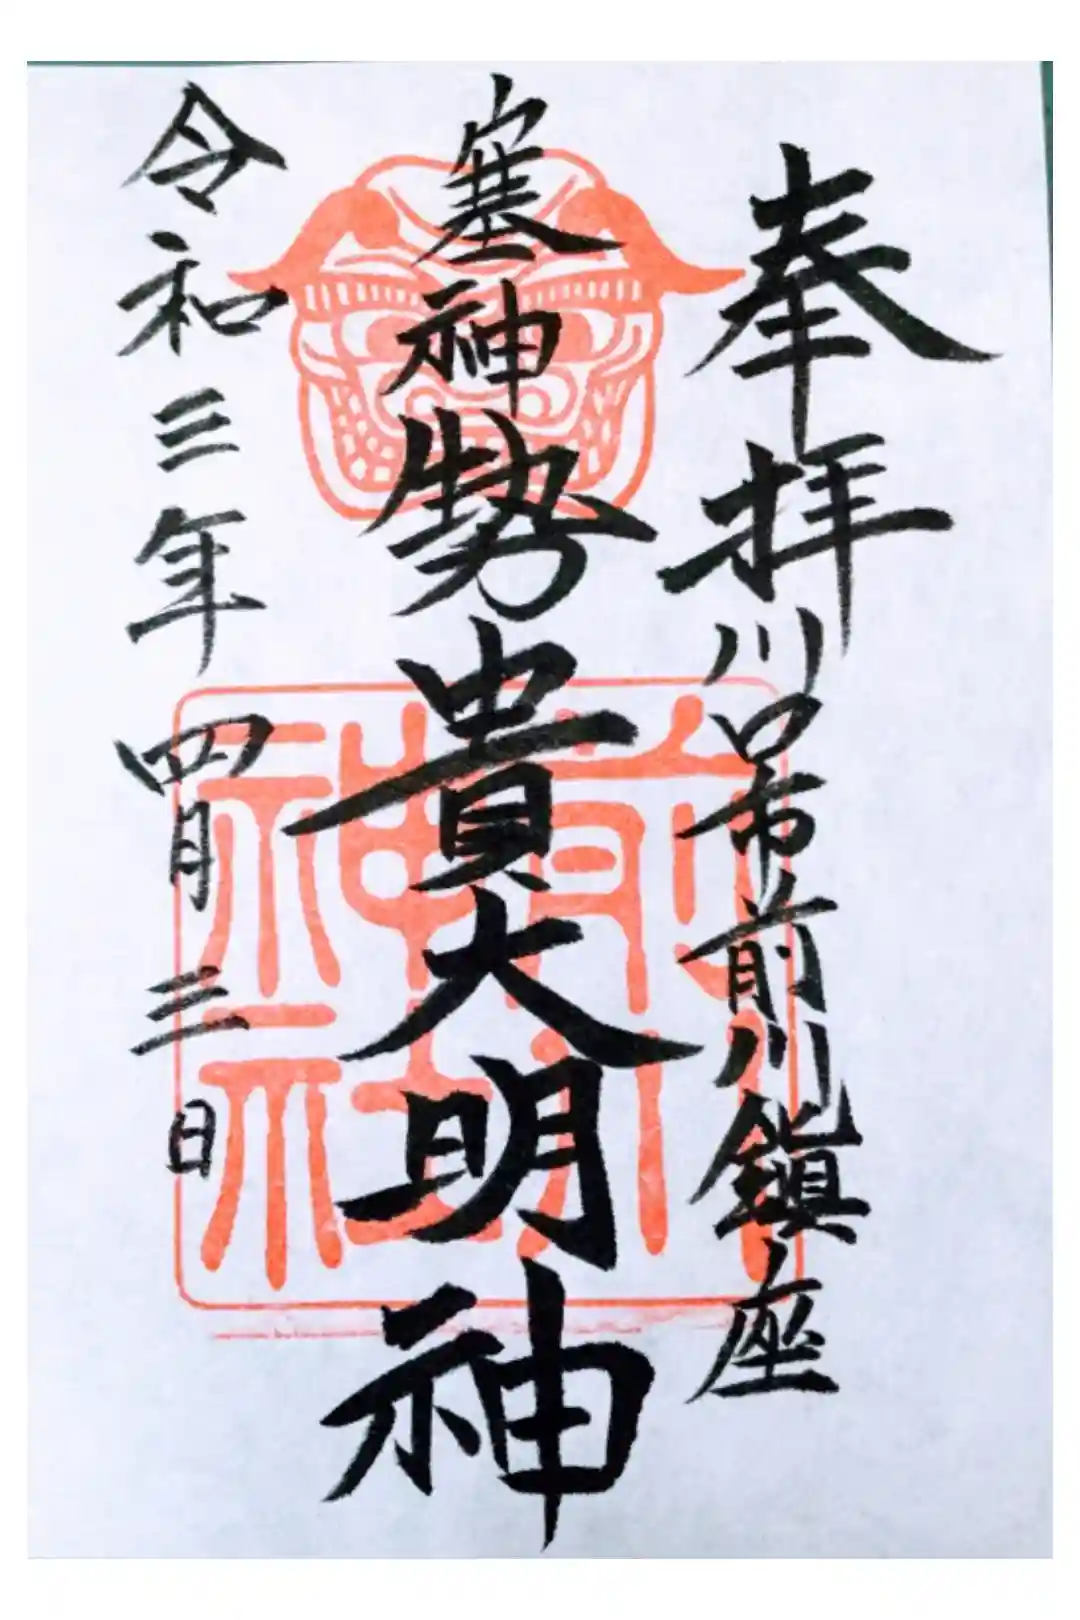 奉拝川口市前川鎮座
塞神勢貴大明神
令和三年四月三日
前川
神社